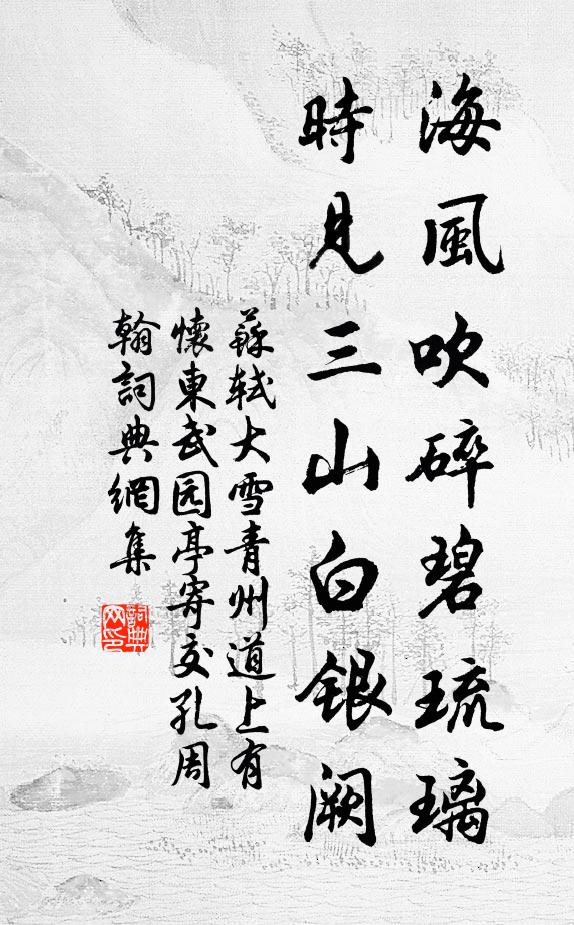 海風吹碎碧琉璃
時見三山白銀闕
蘇軾大雪青州道上有
懷東武园亭寄交孔周
翰詞典網集
詞典
网印